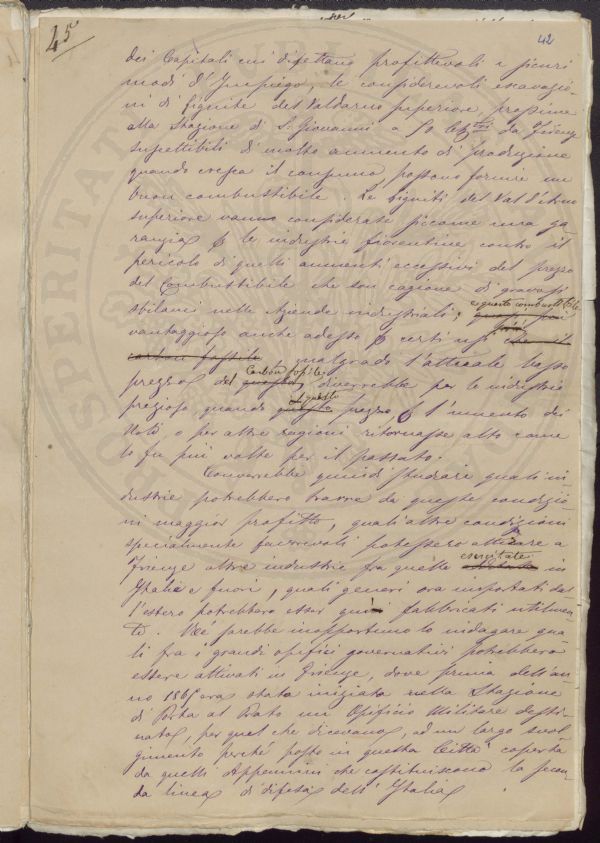 45
42
dei Capitali cui difettano profittevoli e sicuri
modi d'Impiego, le considerevoli escavazio-
ni di lignite del Valdarno superiore prossime
alla Stazione di S. Giovanni a 50 da Firenze
suscettibili di molto aumento di produzione
quando cresca il consumo, possono fornire un
buon combustibile. Le ligniti del Val d'Arno
superiore vanno considerate siccome una ga-
ranzia p le industrie fiorentine contro il
pericolo di quelli aumenti eccessivi del prezzo
del Combustibile che son cagione di gravosi
bilanci nelle Aziende industriali; e questo combustibile
vantaggioso anche adesso p certi usi che il
carbon fossile, malgrado l'attuale basso
prezzo del questo Carbon fossile, diverrebbe per le industrie
prezioso, quando questo il prezzo p l'aumento dei
Noli o per altre ragioni ritornasse alto come
lo fu più volte per il passato.
Converrebbe quindi studiare quali in-
dustrie potrebbero trarre da queste condizio-
ni maggior profitto, quali altre condizioni
specialmente favorevoli potessero attirare a
Firenze altre industrie fra quelle esercitate in
Italia e fuori, quali generi ora importati dal-
l'estero potrebbero esser qui fabbricati utilmen-
te. Né sarebbe inopportuno lo indagare qua-
li fra i grandi opifici governativi potrebbero
essere attivati in Firenze, dove prima dell'an-
no 1865 era stata iniziata nella Stazione
di Porta al Prato un Opificio Militare desti-
nato, per quel che dicevano, ad un largo svol-
gimento perché posto in questa Città coperta
da quelli Appennini che costituiscono la secon-
da linea di difesa dell'Italia